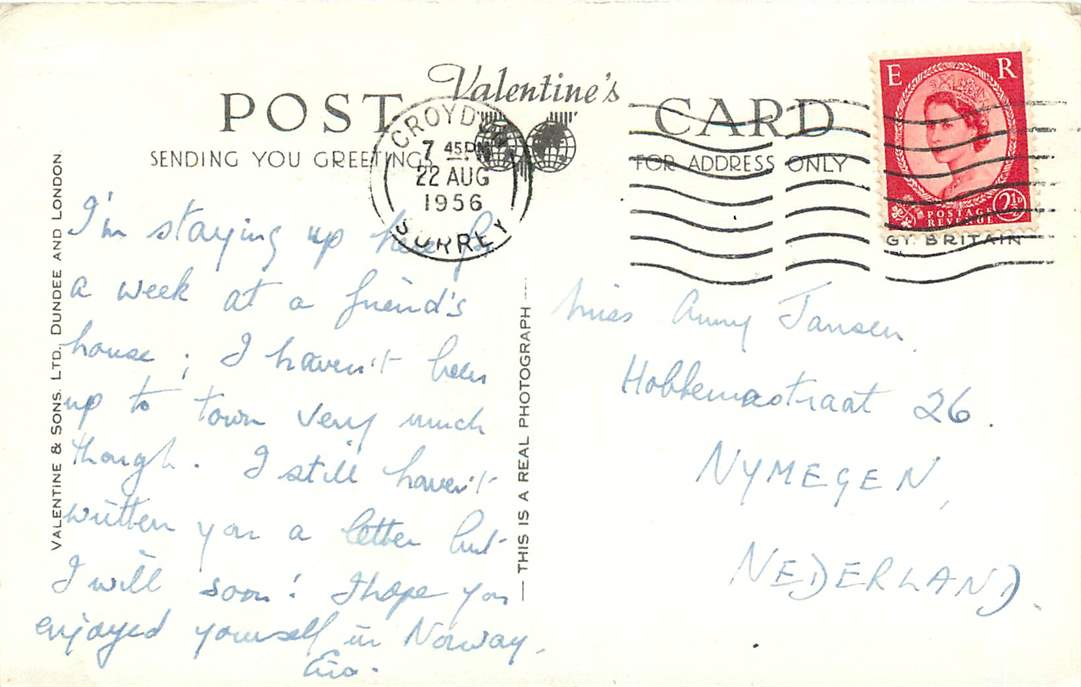 Valentine's
POST CARD
SENDING YOU GREETINGS
FOR ADDRESS ONLY
CROYDON
7 45PM
22 AUG
1956
SURREY
E R
POSTAGE
REVENUE
2½
GT. BRITAIN
VALENTINE & SONS. LTD. DUNDEE AND LONDON
THIS IS A REAL PHOTOGRAPH
I'm staying up here for
a week at a friend's
house; I haven't been
up to town very much
though. I still haven't
written you a letter but
I will soon! I hope you
enjoyed yourself in Norway.
Miss Anny Jansen.
Hobbemastraat 26.
NYMEGEN,
NEDERLAND.